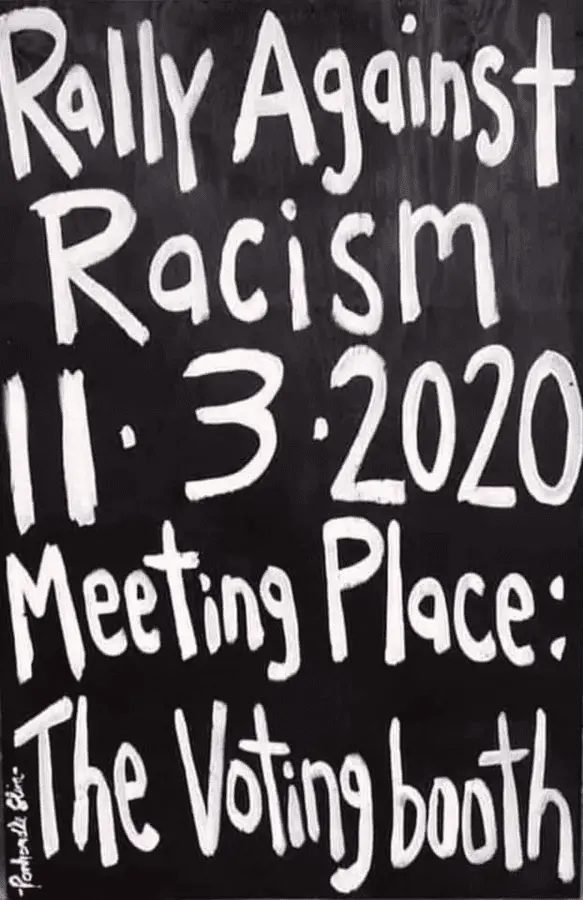 Rally Against
Racism
11.3.2020
Meeting Place:
The Voting booth
-Panhandle Slim-